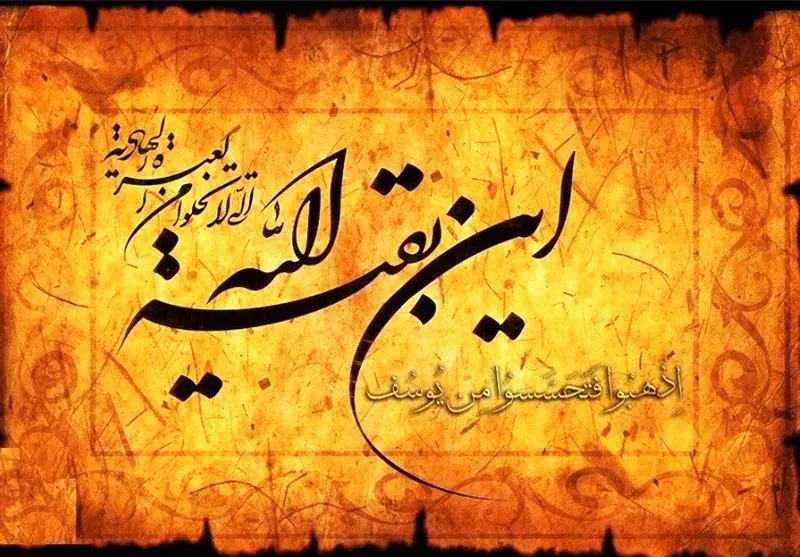 اين بقية الله
التي لا تخلوا من العترة الهادية
اِذْهَبُوا فَتَحَسَّسُوا مِن يُوسُفَ